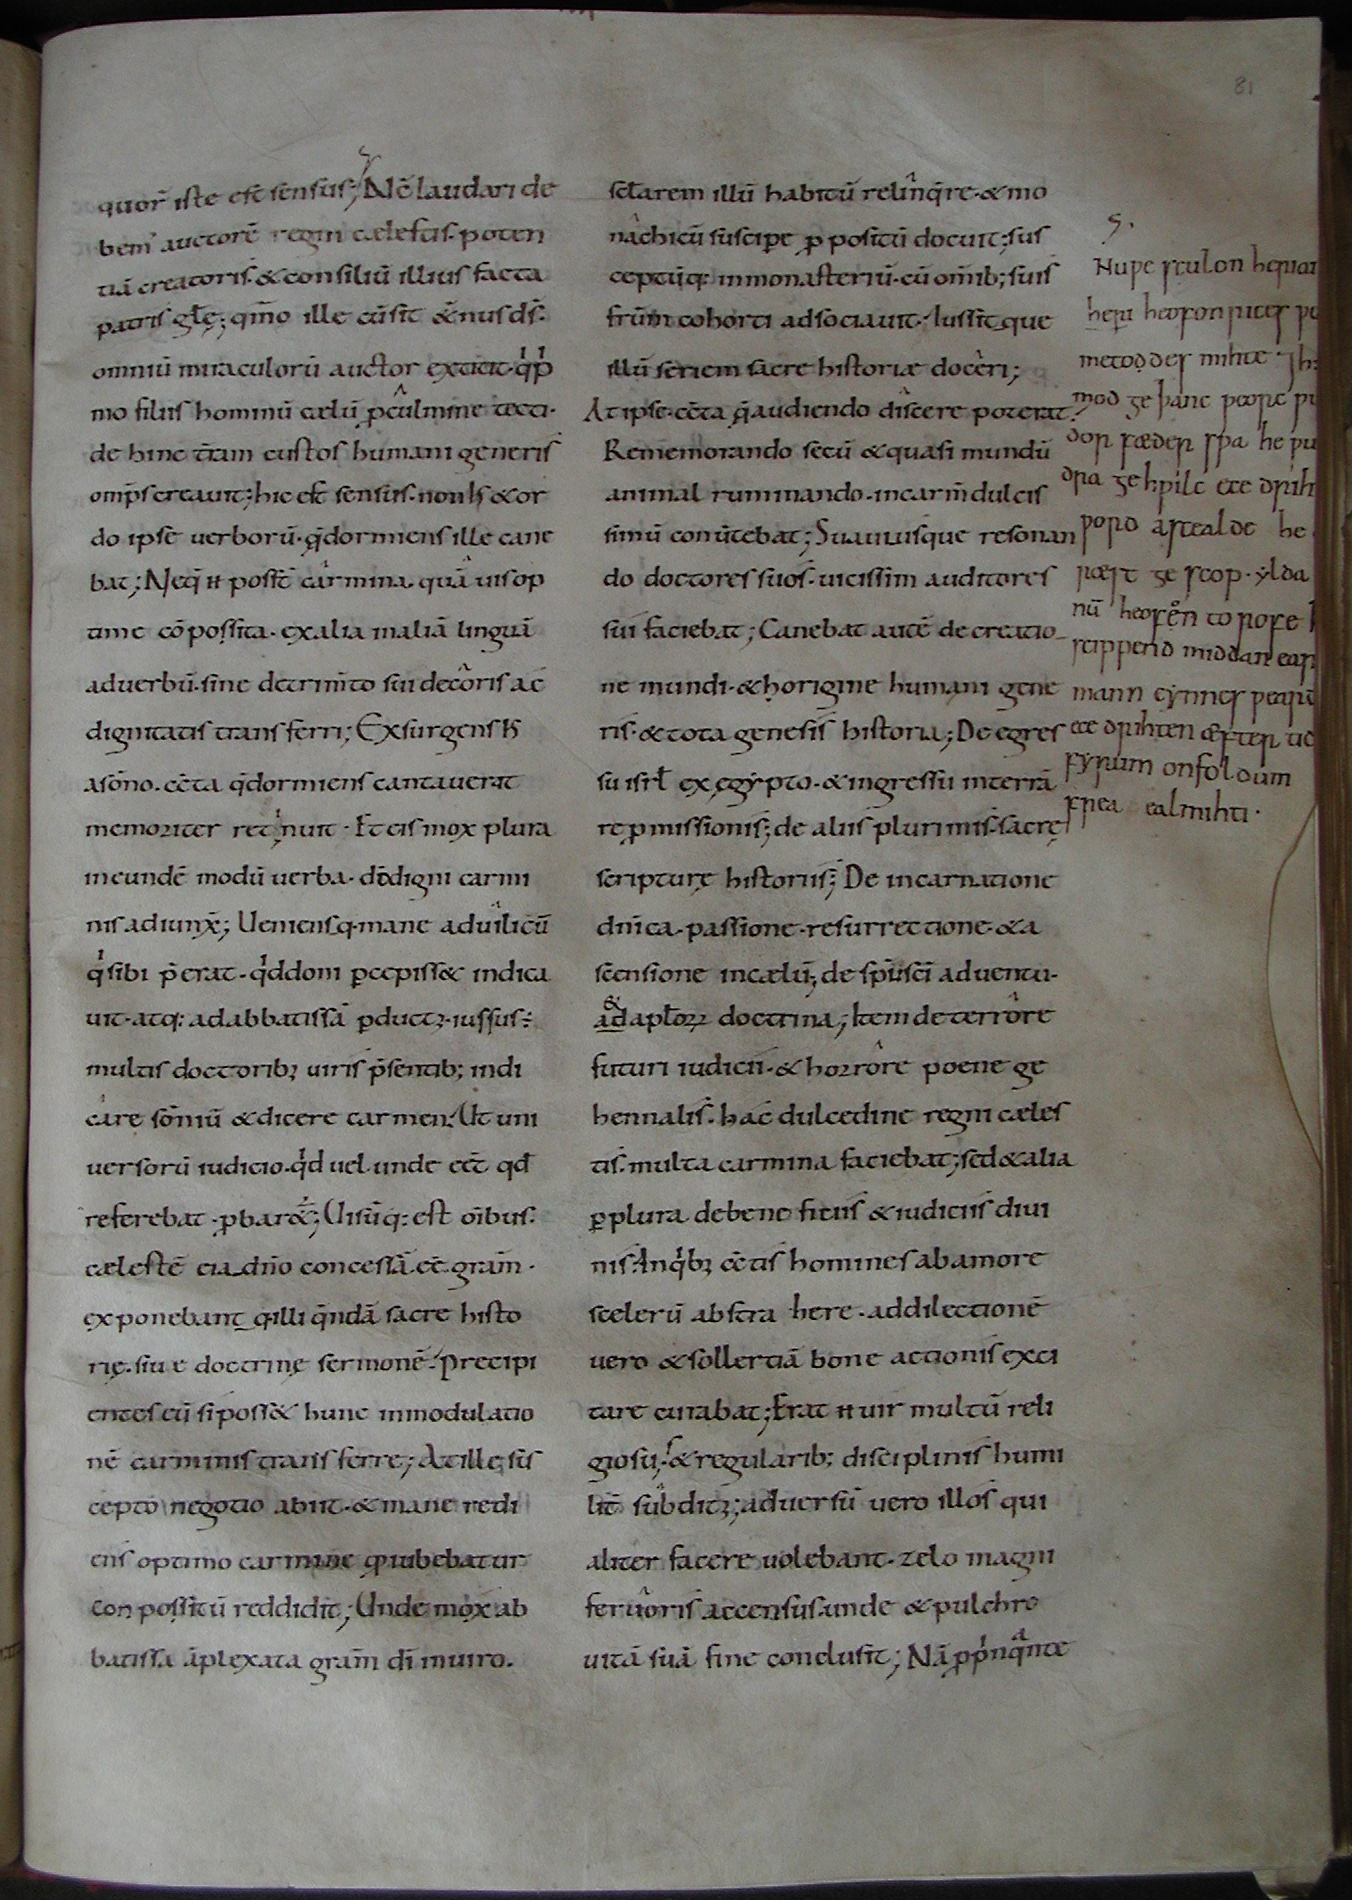 81
quor̄ iste est̄ sensus; Nc̄ laudari de
bem᷒ auctorē regni cælestis. poten
tiā creatoris. & consiliū illius facta
patris glę; qm̄o ille cū sit æt̄nus ds̄.
omniū miraculorū auctor extitit. q̇ p̍
mo filiis hominū cælū p̱ culmine tecti.
de hinc t̄ram custos humani generis
omps̄ creauit; hic est̄ sensus. non ħs & or
do ipse uerborū. q̄ dormiens ille cane
bat; Neq̄ ꞥ possc̄ carmina. quā uis op
time cōpossita. ex alia in aliā linguā
ad uerbū. sine detrim̄to sui decoris ac
dignitatis transferri; Exsurgens ħ
a sōno. cc̄ta q̄ dormiens cantauerat
memoriter retinuit. Et eis mox plura
in eundē modū uerba. dō digni carmi
nis adiunx̄; Ueniensq. mane ad uilicū
q̍ sibi p̄erat. q̍d doni p̱cepiss& indica
uit. atq: ad abbatissā p̱ductꝫ. iussus:
multis doctoribꝫ uiris p̄sentib; indi
care sōniū & dicere carmen. Ut uni
uersorū iudicio. q̍d uel unde ec̄t qd̄
referebat. p̱bar&; Uisūq: est oībus.
cælestē ei a dn̄o concessā. ec̄. grām.
exponebant q. illi q̄ndā sacre histo
rię. siue doctrinę sermonē. precipi
entes eū si poss& hunc in modulatio
nē carminis transferre; At ille sus̄
cepto negotio abiit. & mane redi
ens optimo carmine q̍ iubebatur
con possitū reddidit; Unde mox ab
batissa āplexata grām dī in uiro.
sc̄larem illū habitū relinq̄re. & mo
nachicū suscipe p̱positū docuit; sus
ceptūq: in monasteriū. cū om̄ib; suis
frūm cohorti adsociauit. Iussit que
illū seriem sacre historiæ doceri;
At ipse. cc̄ta q̄ audiendo discere poterat.
Rememorando secū & quasi mundū
animal ruminando. in carm̄ dulcis
simū conūtebat; Suauiusque resonan
do doctores suos. uicissim auditores
sui faciebat; Canebat autē de creatio
ne mundi. & horigine humani gene
ris. & tota genesis historia; De egres
su isrł ex ęgypto. & ingressu in terrā
re p̱missionis; de aliis plurimis. sacrę
scripturę historiis; De incarnatione
dn̄ica. passione. resurrectione. & a
scensione in cælū; de sp̄u sc̄i aduentu.
&
ad apłoꝝ doctrina; Item de terrore
futuri iudicii. & horrore poene ge
hennalis. hac dulcedine regni cæles
tis. multa carmina faciebat; sed & alia
p̱plura de beneficiis & iudiciis diui
nis. In q̍bꝫ cc̄tis homines ab amore
scelerū abstrahere. ad dilectionē
uero & sollertiā bone actionis exci
tare curabat; Erat ꞥ uir multū reli
giosus. & regularib; disciplinis humi
lit̄ subditꝫ; aduersū uero illos qui
aliter facere uolebant. zelo magni
feruoris accensus. unde & pulchro
uitā suā fine conclusit; Nā p̱p̍nq̄nte
S.
Nuƿe sculon heriai
heri heofonrices ƿe
metoddes mihte. ⁊ h
mod geþanc ƿeorc
dor fæder sƿa he ƿu
dra gehƿilc ece drih
ƿord astealde he
ræst gescop. ylda
nū heofen to rofe
scippend middan ear
mann cynnes ƿeard
ece drihten æfter
fyrum onfoldum
frea ealmihti.